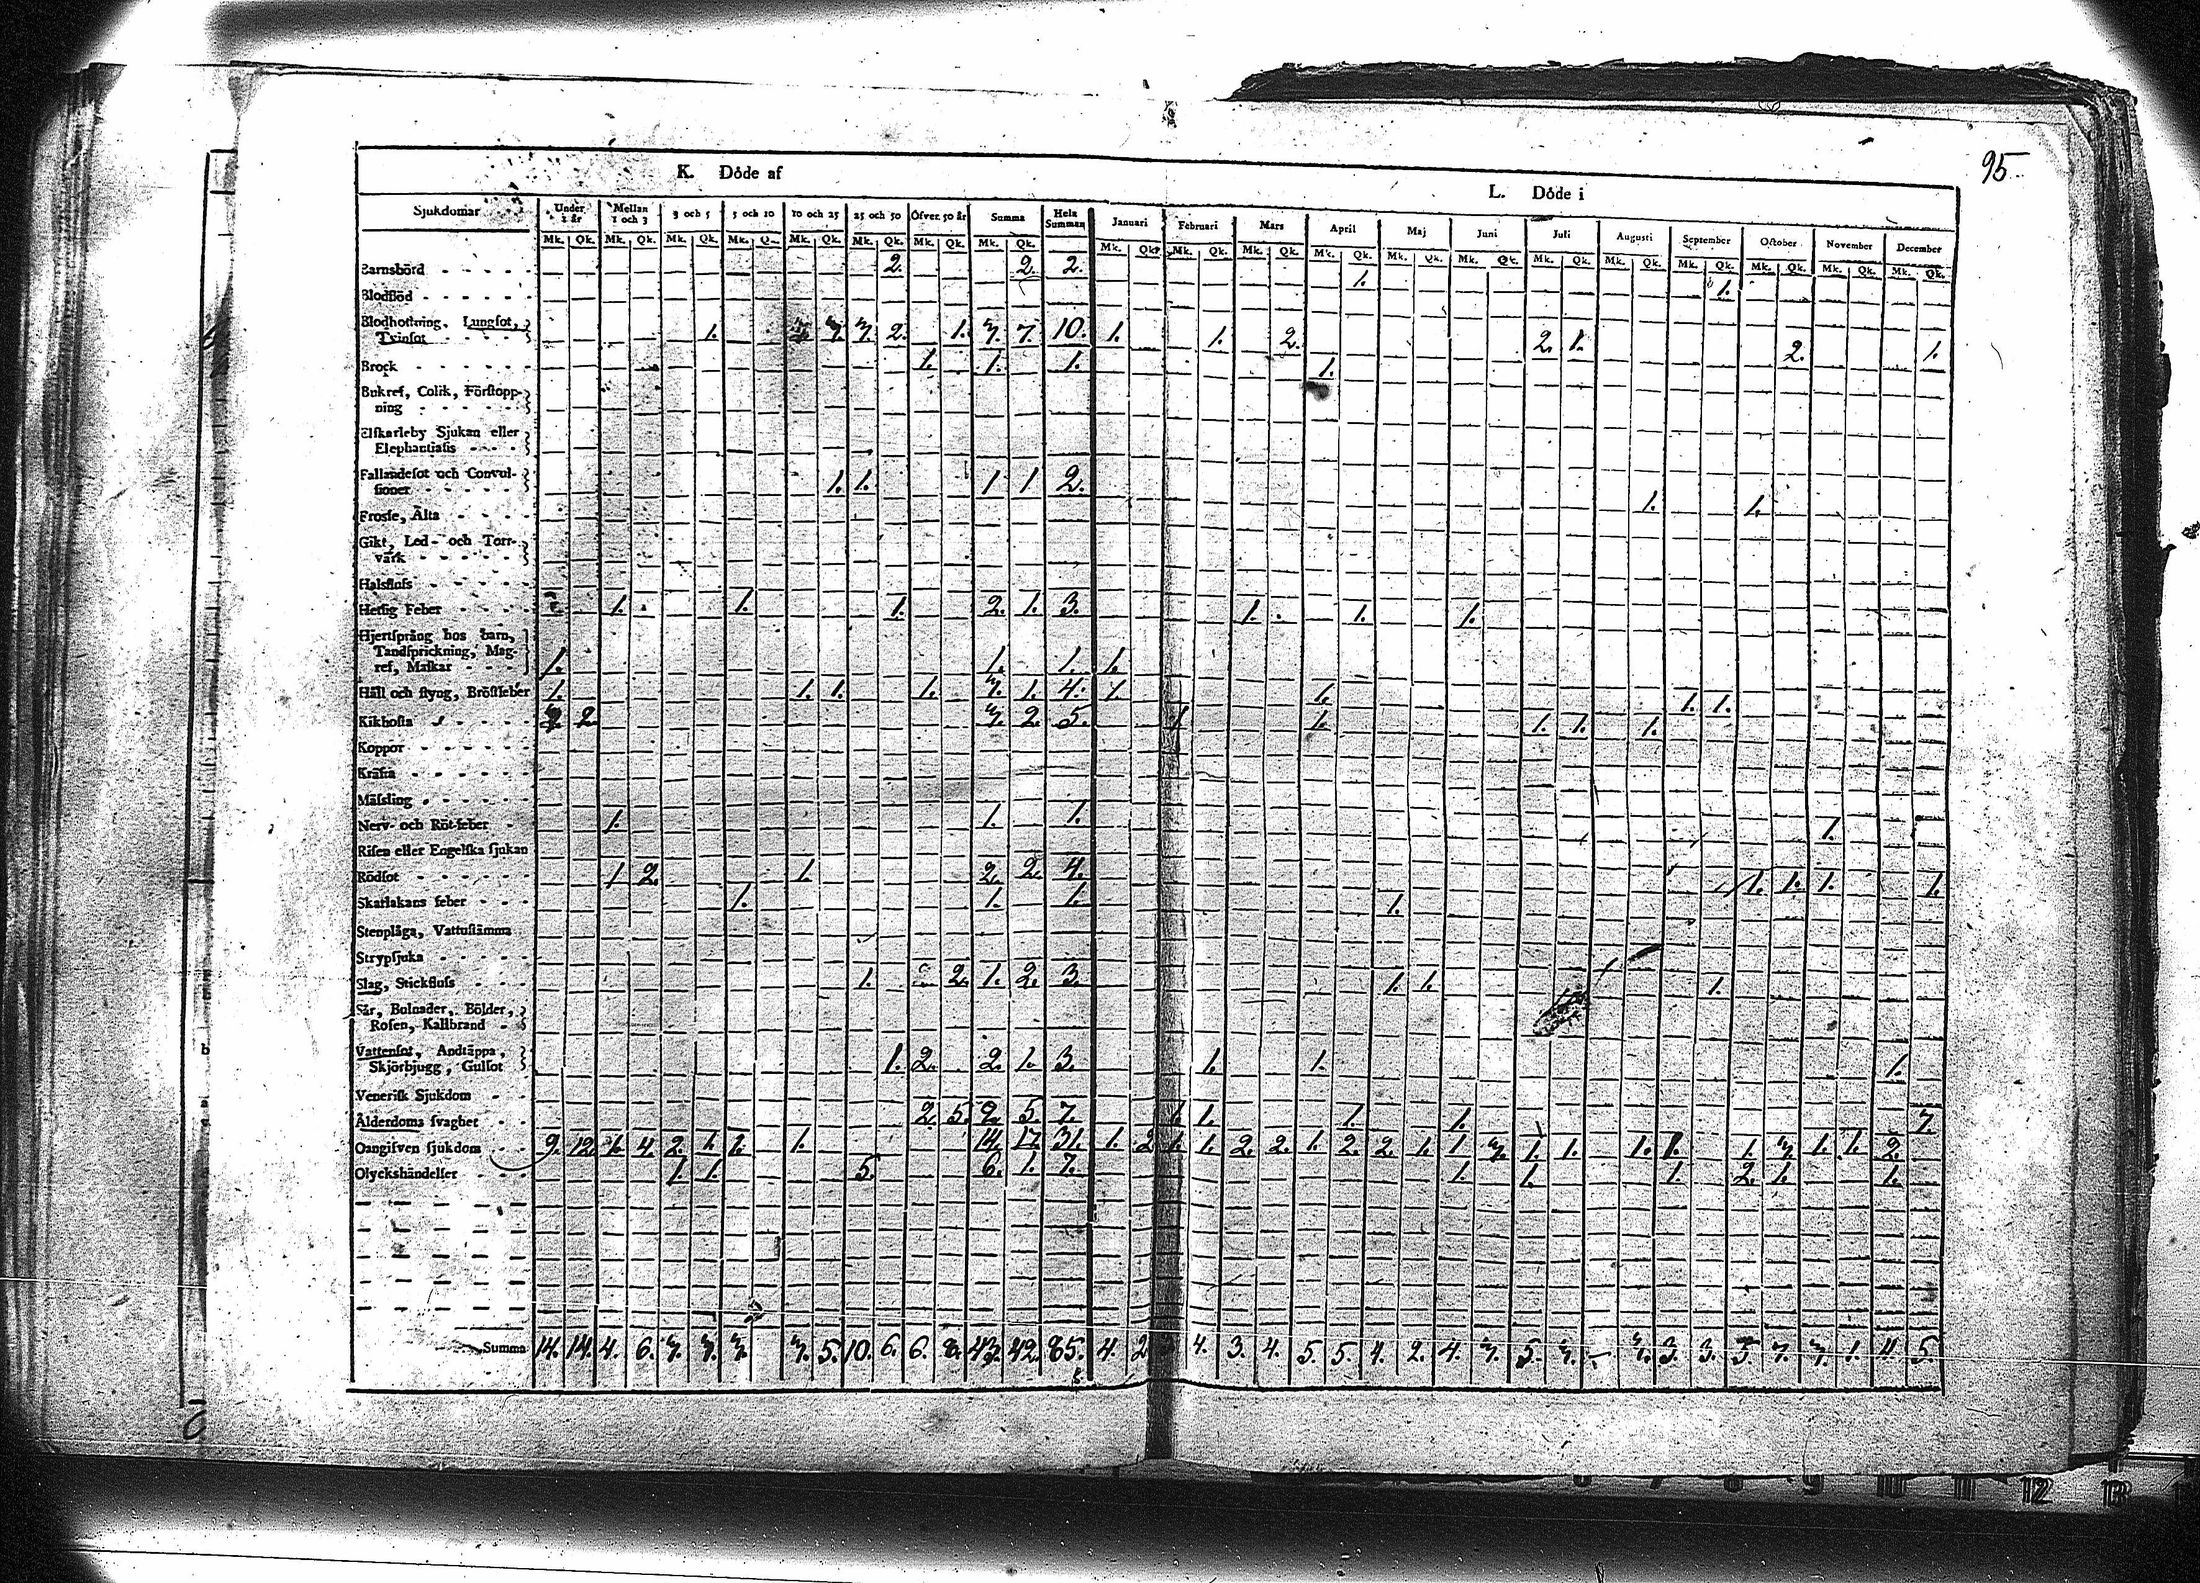 95
K. Döde af
L. Döde i
Sjukdomar Under 1 år Mellan 1 och 3 3 och 5 5 och 10 10 och 25 25 och 50 Öfver 50 år Summa Hela Summan Januari Februari Mars April Maj Juni Juli Augusti September October November December
Mk. Qk. Mk. Qk. Mk. Qk. Mk. Q Mk. Qk. Mk. Qk. Mk. Qk. Mk. Qk. Mk. Qk. Mk. Qk. Mk. Qk. Mk. Qk. Mk. Qk. Mk. Qk. Mk. Qk. Mk. Qk. Mk. Qk. Mk. Qk. Mk. Qk.
Barnsbörd 2. 2. 2. 1. 1.
Blodflöd
Blodhostning, Lungsot,
Tvinsot 1. 2. 1. 7. 10. 1. 1. 2. 2. 1. 2. 1.
Brock 1. 1. 1. 1.
Bukref, Colik, Förstopp-
ning
Elfkarleby Sjukan eller
Elephantiasis
Fallandesot och Convul-
sioner 1. 1. 1 1 2. 1. 1.
Frossa, Älta
Gikt, Led- och Torr-
värk
Halsfluss
Hetsig Feber 1. 1. 1. 2. 1. 3. 1. 1. 1.
Hjertsprång hos barn,
Tandsprickning, Mag-
ref, Maskar 1. 1. 1. 1.
Håll och styng, Bröstfeber 1. 1. 1. 1. 1. 4. 1. 1. 1. 1.
Kikhosta 2. 2. 5. 1 1. 1. 1. 1.
Koppor
Kräfta
Mässling
Nerv- och Röt-feber 1. 1. 1. 1.
Risen eller Engelska sjukan
Rödsot 1 2. 1. 2. 2. 4. 1. 1. 1. 1.
Skarlakans feber 1. 1. 1. 1.
Stenplåga, Vattustämma
Strypsjuka
Slag, Stickfluss 1. 2. 1. 2. 3. 1. 1. 1.
Sår, Bulnader, Bölder,
Rosen, Kallbrand
Vattensot, Andtäppa,
Skjörbjugg, Gulsot 1. 2. 2. 1. 3. 1. 1. 1.
Venerisk Sjukdom
Ålderdoms svaghet 2. 5. 2. 5. 7. 1. 1. 1. 1.
Oangifven sjukdom 9. 12. 1. 4. 2. 1. 1. 1. 14. 17. 31. 1. 2 1. 1. 2. 2. 1. 2. 2. 1. 1 1. 1. 1. 1. 1. 1. 1. 2.
Olyckshändelser 1. 1. 5. 6. 1. 7. 1. 1. 1. 2. 1. 1.
Summa 14. 14. 4. 6. 5. 10. 6. 6. 8. 43. 42. 85. 4. 2 4. 3. 4. 5. 5. 4. 2. 4. 5. 3. 3. 5. 7. 1. 4. 5.
12